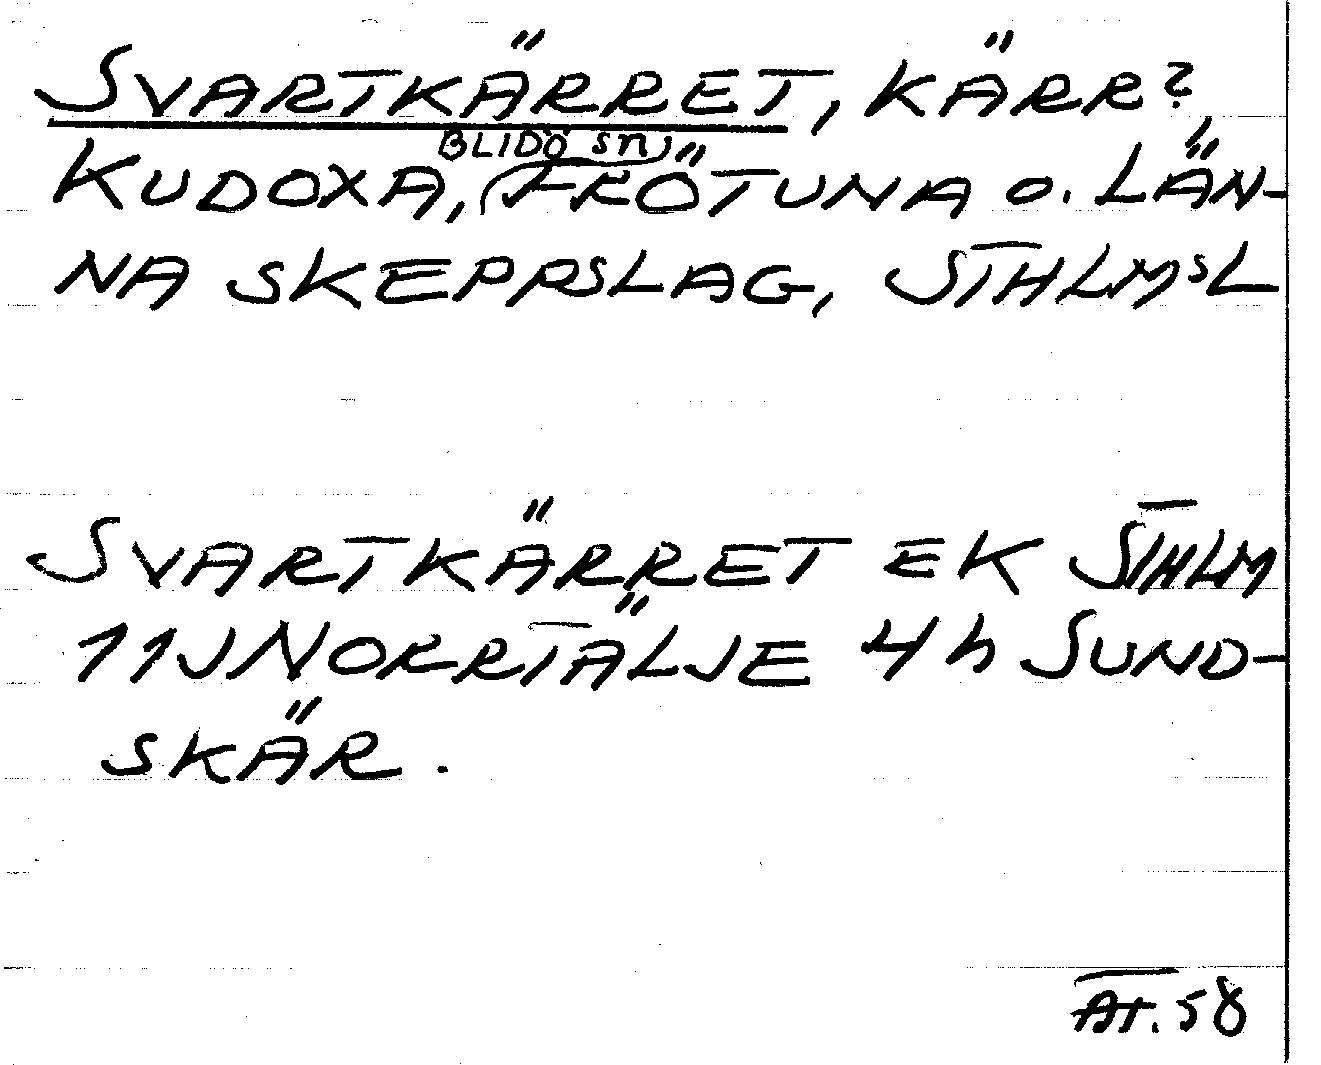 SVARTKÄRRET, KÄRR?
BLIDÖ SN,
KUDOXA, (FRÖTUNA O. LÄN-
NA SKEPPSLAG, STHLMSL
SVARTKÄRRET EK STHLM
11J NORRTÄLJE 4h SUND-
SKÄR.
AT. 58